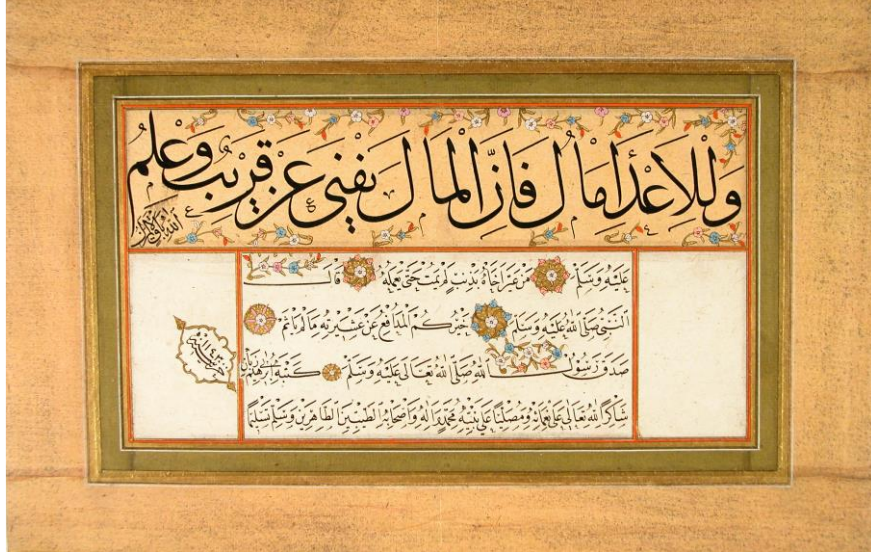 وَلِلاَعْدَا مَالُ فَاِنَّ الْمَالَ يَفْنَى عَنْ قَرِيبٍ وَعِلْمُ
اللهِ بَاقٍ لَا يَزَالُ
عَلَيْهِ وَسَلَّمْ مَنْ عَيَّرَ اَخَاهُ بِذَنْبٍ لَمْ يَمُتْ حَتَّى يَعْمَلَهُ قَالَ
النَّبِيُّ صَلَّى اللهُ عَلَيْهِ وَسَلَّمَ خَيْرُكُمُ الْمُدَافِعُ عَنْ عَشِيرَتِهِ مَا لَمْ يَاْثَمْ
صَدَقَ رَسُولُ اللهِ صَلَّى اللهُ تَعَالَى عَلَيْهِ وَسَلَّمْ كَتَبَهُ
شَاكِرًا لِلّهِ تَعَالَى عَلَى وَمُصَلِّيًا عَلَى نَبِيِّهِ مُحَمَّدٍ وَالِهِ وَاَصْحَابِهِ الطَّيِّبِينَ الطَّاهِرِينَ وَسَلَّمَ تَسْلِيمًا